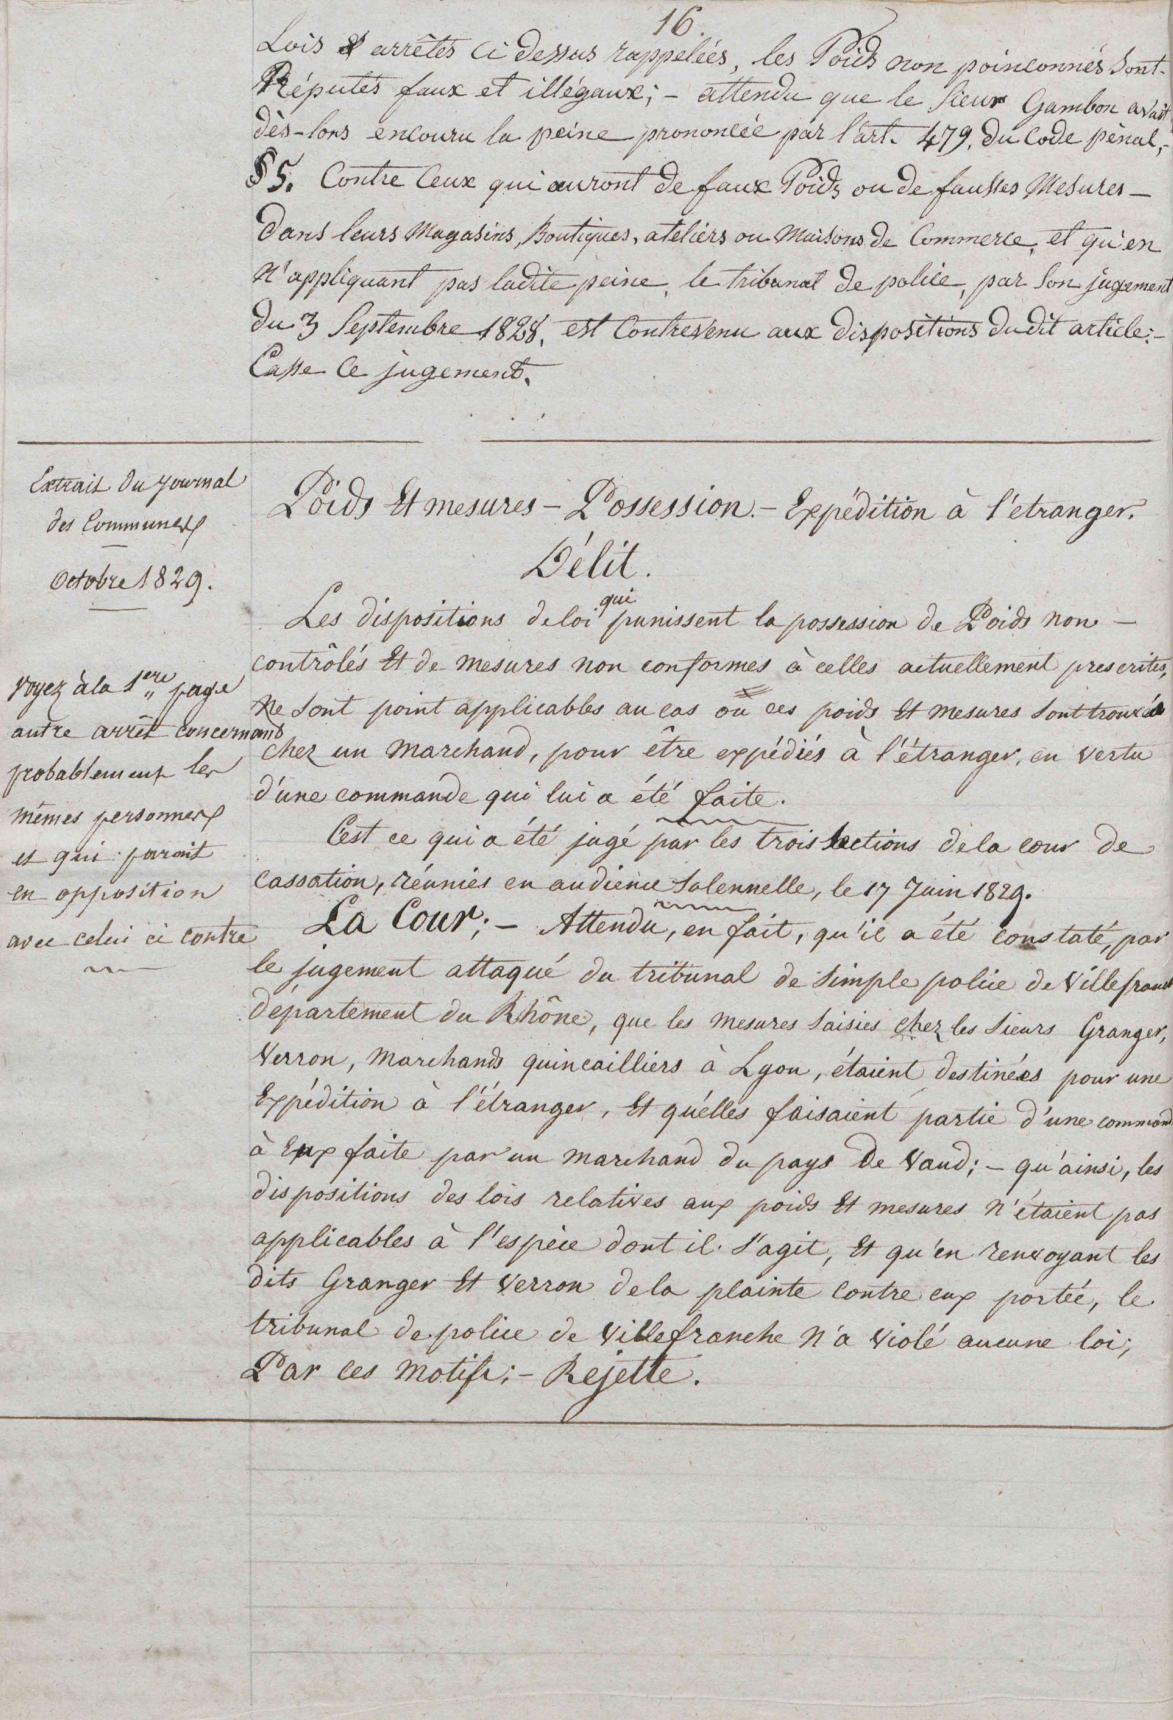 16.
Lois & arrêtés ci dessus rappelées, les Poids non poinçonnés sont-
Réputés faux et illégaux; - attendu que le sieur Gambon avait
dès-lors encouru la peine prononcée par l'art. 479. du Code pénal,-
§ 5. Contre Ceux qui auront de faux Poids ou de fausses Mesures -
Dans leurs Magasins, Boutiques, ateliers ou Maisons de Commerce, et qu'en
N'appliquant pas ladite peine, le tribunal de police, par son jugement
du 3 Septembre 1828, est Contrevenu aux dispositions dudit article:-
Casse Ce jugement.
Extrait du Journal
des Communes
Octobre 1829.
Voyez à la 1ere page
autre arrêt concernand
probablement les
mêmes personnes
et qui parait
en opposition
avec celui ci contre
Poids Et mesures - Possession. - Expédition à l'étranger.
Délit.
Les dispositions de loi qui punissent la possession de Poids non -
contrôlés Et de mesures non conformes à celles actuellement prescrites,
Ne sont point applicables au cas où ces poids Et mesures sont trouvés
chez un Marchand, pour être expédiés à l'étranger, en vertu
d'une commande qui lui a été faite.
C'est ce qui a été jugé par les trois sections de la cour de
cassation, réunies en audience solennelle, le 17 Juin 1829.
La Cour; - Attendu, en fait, qu'il a été constaté, par
le jugement attaqué du tribunal de simple police de Villefranche
département du Rhône, que les mesures saisies chez les sieurs Granger,
Verron, marchands quincailliers à Lyon, étaient destinées pour une
Expédition à l'étranger, Et qu'elles faisaient partie d'une command
à Eux faite par un marchand du pays De Vaud; - qu'ainsi, les
dispositions des lois relatives aux poids Et mesures N'étaient pas
applicables à l'espèce dont il s'agit, Et qu'en renvoyant les
dits Granger Et Verron de la plainte contre eux portée, le
tribunal de police de Villefranche N'a violé aucune loi;
Par ces motifs; - Rejette.